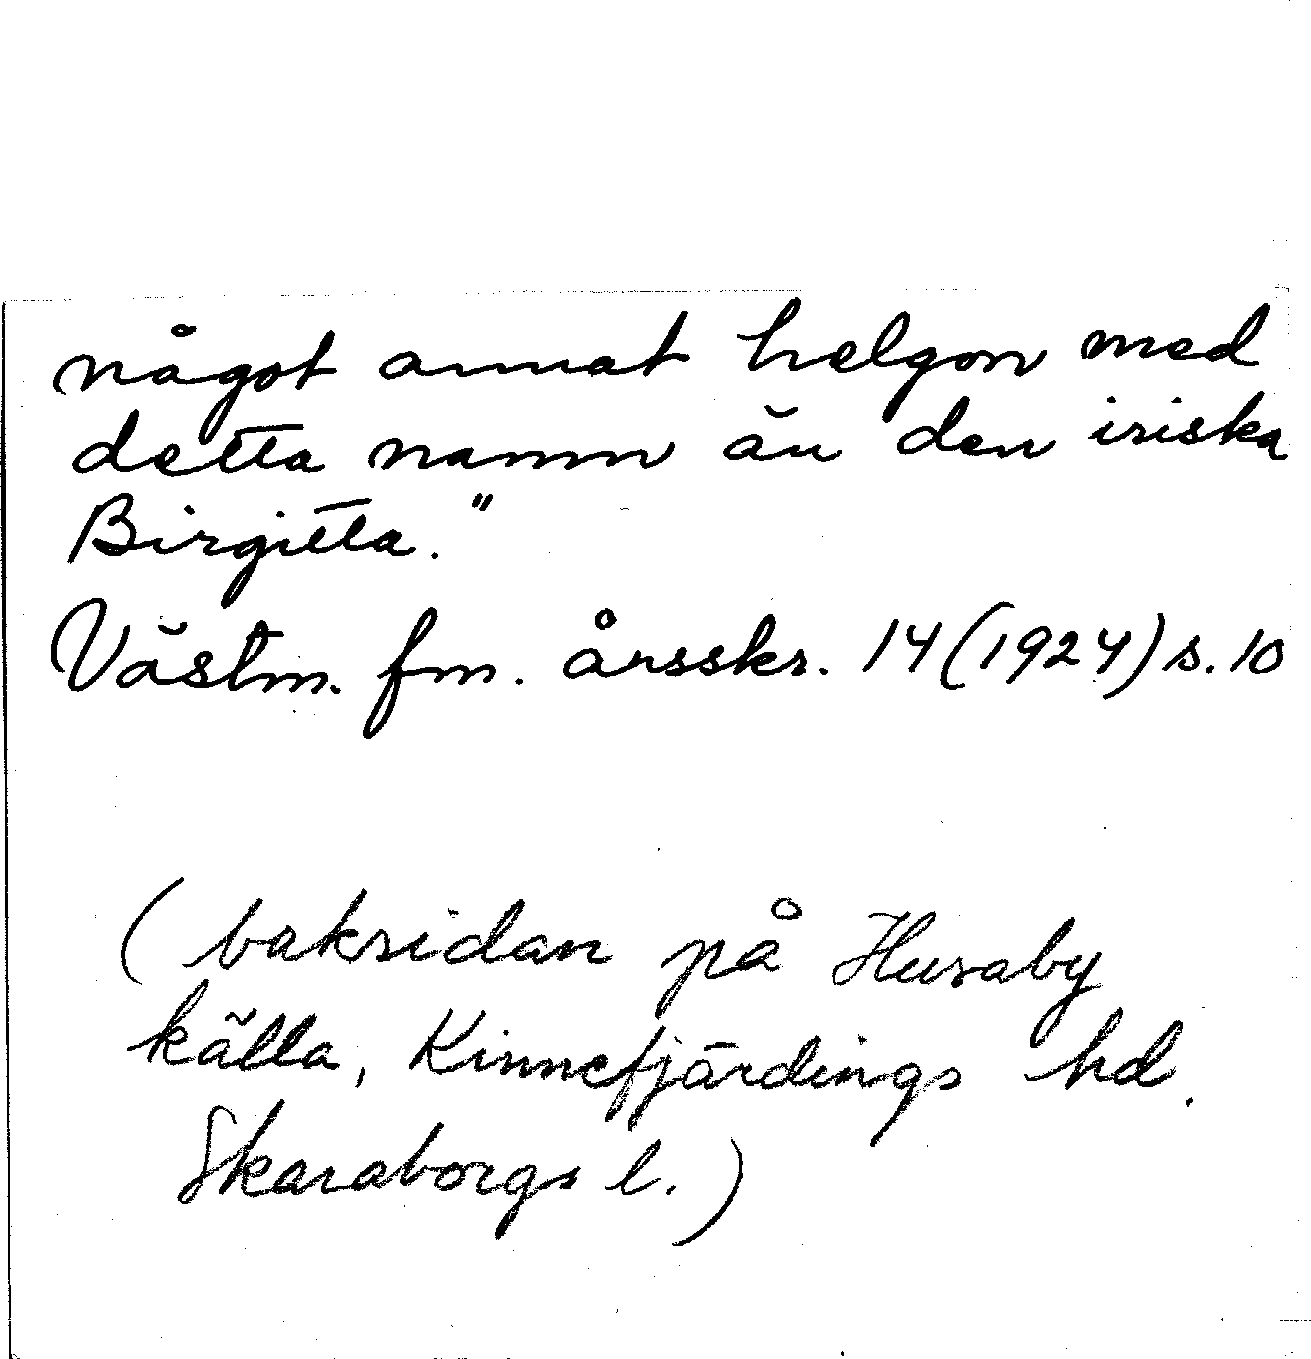 något annat helgon med
detta namn än den iriska
Birgitta."
Västm. fm. årsskr. 14 (1924) s. 10
(baksidan på Husaby
källa, Kinnefjärdings hd.
Skaraborgs l.)